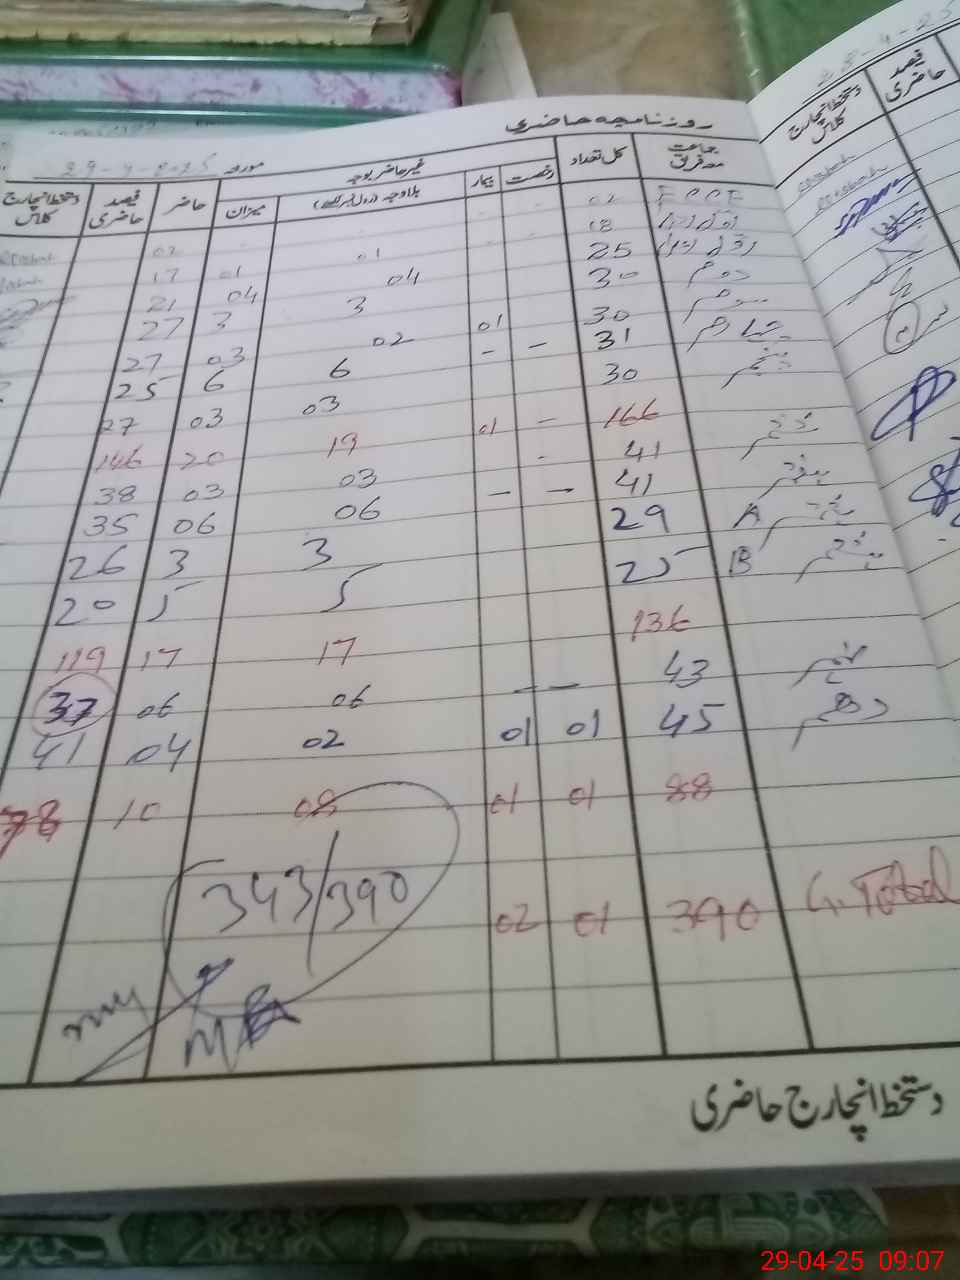 روزنامچہ حاضری
مورخہ 29-4-2025
جماعت معہ فریق کل تعداد رخصت بیمار غیر حاضر بوجہ بلاوجہ میزان حاضر فیصد حاضری دستخط انچارج کلاس
ECCE 02 02
18 01 01 17
25 04 04 21
دوم 30 3 3 27
سوم 30 01 02 03 27
چہارم 31 - - 6 6 25
پنجم 30 03 03 27
166 - 01 19 20 146
41 03 03 38
41 — — 06 06 35
A 29 3 3 26
B 25 5 5 20
136 17 17 119
نہم 43 — — 06 06 37
دہم 45 01 01 02 04 41
88 01 01 08 10 78
343/390
G.Total 390 01 02
دستخط انچارج حاضری
فیصد حاضری
دستخط انچارج کلاس
29-04-25 09:07